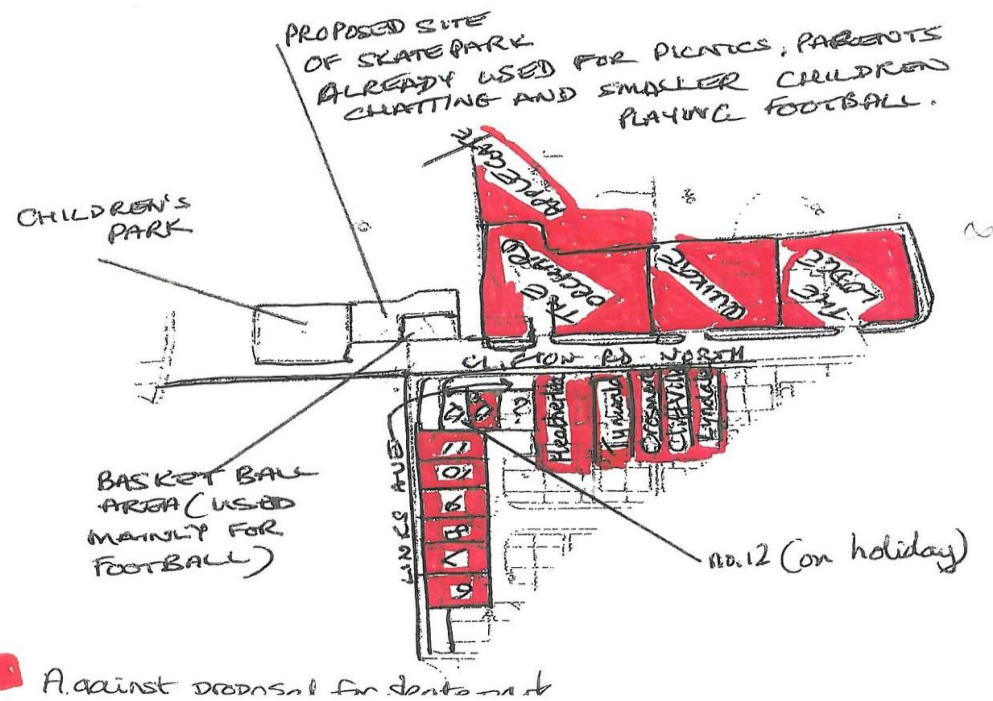 PROPOSED SITE
OF SKATEPARK
ALREADY USED FOR PICNICS, PARENTS
CHATTING AND SMALLER CHILDREN
PLAYING FOOTBALL.
CHILDREN'S
PARK
APPLEGATE
THE
ORCHARD
THE
LODGE
CLIFTON RD NORTH
Heatherlea
LINKS AVE
11
10
9
8
7
6
BASKET BALL
AREA (USED
MAINLY FOR
FOOTBALL)
no.12 (on holiday)
Against proposal for skatepark